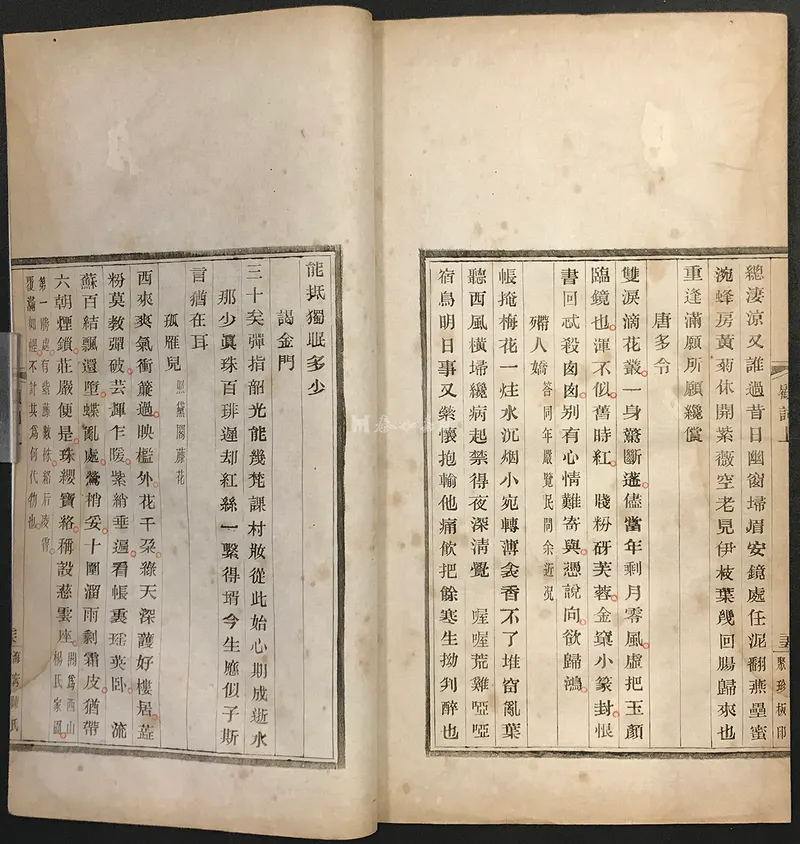 總淒涼又誰過昔日幽窗埽眉安鏡處任泥翻燕壘蜜
涴蜂房黃菊休開紫薇空老見伊枝葉幾回腸歸來也
重逢滿願所願纔償
唐多令
雙淚滴花叢一身驚斷蓬儘當年剩月零風虛把玉顏
臨鏡也渾不似舊時紅 賤粉砑芙蓉金窠小篆封恨
書回忒殺匆匆別有心情難寄與憑說向欲歸鴻
殢人嬌 答同年嚴覽民問余近況
帳掩梅花一炷水沉烟小宛轉薄衾香不了堆窗亂葉
聽西風橫埽纔病起禁得夜深淸覺 喔喔荒雞啞啞
宿鳥明日事又縈懷抱輸他痛飮把餘寒生拗判醉也
聚珍板印
能抵獨眠多少
謁金門
三十矣彈指韶光能幾梵課村妝從此始心期成逝水
那少眞珠百琲遲却紅絲一繫得壻今生應似子斯
言猶在耳
孤雁兒 照黛閣藤花
西來爽氣衝簾過映檻外花千朶綠天深護好樓居葢
粉莫教彈破芸輝乍陊紫綃垂遍看帳裏瑤英臥 流
蘇百結飄還墮蝶亂處鶯梢妥十圍溜雨剩霜皮猶帶
六朝煙鎖莊嚴便是珠纓寶絡稱設慈雲座 閣爲西山楊氏家園
第一勝處有紫藤數株絡石凌霄
覆滿如幄不計其爲何代物也